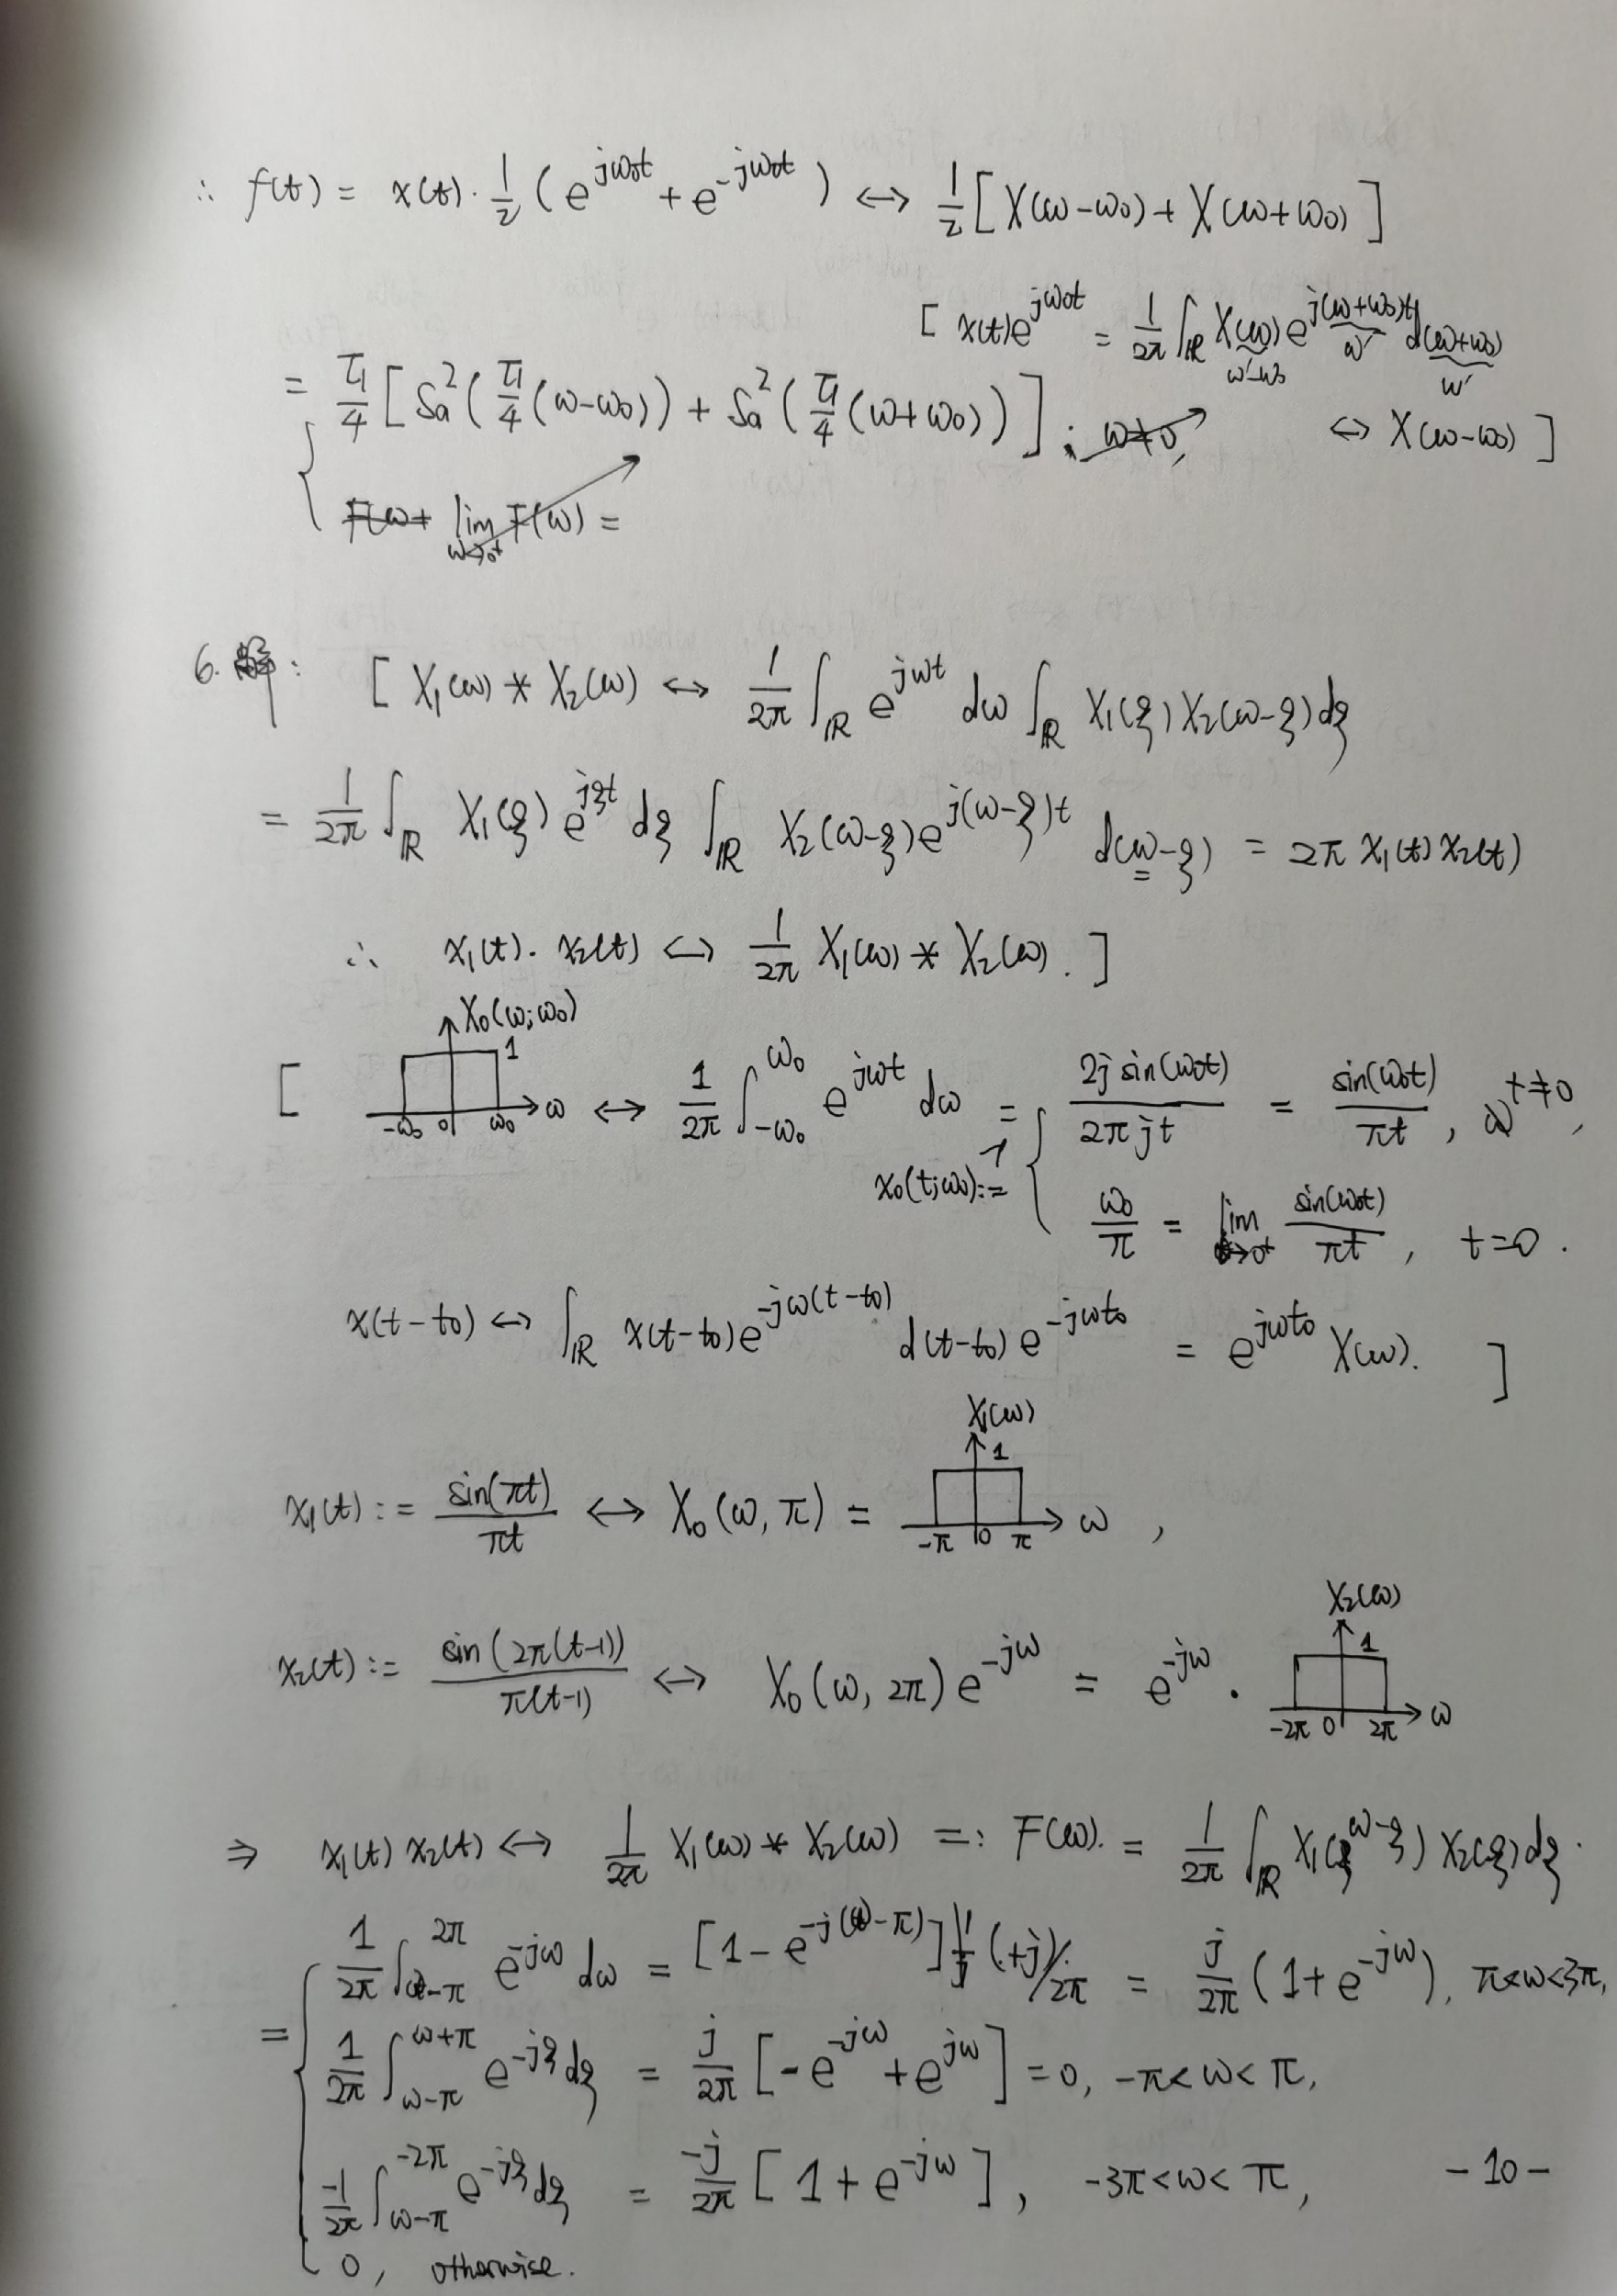 ∴ f(t) = x(t)·1/2 (e^{jω₀t} + e^{-jω₀t}) ↔ 1/2 [X(ω-ω₀) + X(ω+ω₀)]
[ x(t)e^{jω₀t} = 1/2π ∫_ℝ X(ω) e^{j(ω+ω₀)t} d(ω+ω₀)
ω'-ω₀ ω' ω'
= τ₁/4 [Sa²(τ₁/4 (ω-ω₀)) + Sa²(τ₁/4 (ω+ω₀))]; ω≠0, ↔ X(ω-ω₀) ]
F(ω) lim_{ω→0⁺} F(ω) =
6. 解: [ X₁(ω) * X₂(ω) ↔ 1/2π ∫_ℝ e^{jωt} dω ∫_ℝ X₁(ξ) X₂(ω-ξ) dξ
= 1/2π ∫_ℝ X₁(ξ) e^{jξt} dξ ∫_ℝ X₂(ω-ξ) e^{j(ω-ξ)t} d(ω-ξ) = 2π x₁(t) x₂(t)
∴ x₁(t)·x₂(t) ↔ 1/2π X₁(ω) * X₂(ω). ]
X₀(ω;ω₀)
1
[ -ω₀ 0 ω₀ ω ↔ 1/2π ∫_{-ω₀}^{ω₀} e^{jωt} dω = { 2j sin(ω₀t) / 2πjt = sin(ω₀t)/πt, t≠0,
x₀(t;ω₀):=
ω₀/π = lim_{t→0⁺} sin(ω₀t)/πt, t=0.
x(t-t₀) ↔ ∫_ℝ x(t-t₀) e^{-jω(t-t₀)} d(t-t₀) e^{-jωt₀} = e^{jωt₀} X(ω). ]
X₁(ω)
1
x₁(t) := sin(πt)/πt ↔ X₀(ω, π) = -π 0 π ω ,
X₂(ω)
1
x₂(t) := sin(2π(t-1))/π(t-1) ↔ X₀(ω, 2π) e^{-jω} = e^{-jω} · -2π 0 2π ω
⇒ x₁(t) x₂(t) ↔ 1/2π X₁(ω) * X₂(ω) =: F(ω). = 1/2π ∫_ℝ X₁(ω-ξ) X₂(ξ) dξ.
= { 1/2π ∫_{ω-π}^{2π} e^{-jω} dω = [1 - e^{-j(ω-π)}] (+j)/2π = j/2π (1 + e^{-jω}), π<ω<3π,
1/2π ∫_{ω-π}^{ω+π} e^{-jξ} dξ = j/2π [-e^{-jω} + e^{jω}] = 0, -π<ω<π,
-1/2π ∫_{ω-π}^{-2π} e^{-jξ} dξ = -j/2π [1 + e^{-jω}], -3π<ω<π,
0, otherwise.
-10-